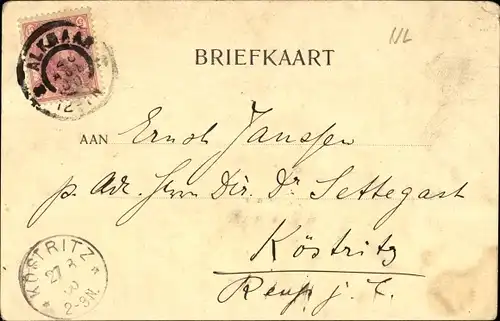 NL
ALKMAAR
12-1N
BRIEFKAART
AAN Ernst Janssen
p. Adr. Herrn Dir. Dr Settegast
Köstritz
Reuß j. L.
KÖSTRITZ
27 8
00
2-3N.